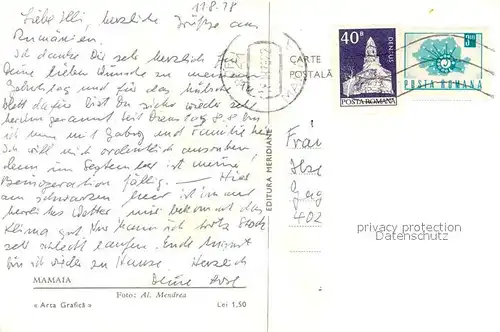 11.8.78
Liebe Illi, herzliche Grüße aus
Rumänien.
Ich danke Dir sehr herzlich für
Deine lieben Wünsche zu meinem
Geburtstag und für das hübsche
Blatt dafür bist Du sicher wieder sehr
herum gerannt. Seit Dienstag 8.8 bin
ich nun mit Gaby und Familie hier
Ich will mich ordentlich ausruhen
denn im September ist meine
Beinoperation fällig. — Hier
am schwarzen Meer ist immer
herrliches Wetter mir bekommt das
Klima gut. Nur kann ich trotz Stock
sehr schlecht laufen. Ende August
bin ich wieder zu Hause. Herzlich
Deine
MAMAIA
Foto: Al. Mendrea
« Arta Grafică »
Lei 1,50
EDITURA MERIDIANE
CARTE
POSTALĂ
40B
DENSUS
POSTA ROMANA
3,00 L
POSTA ROMANA
Frau
Ilse
402
privacy protection
Datenschutz